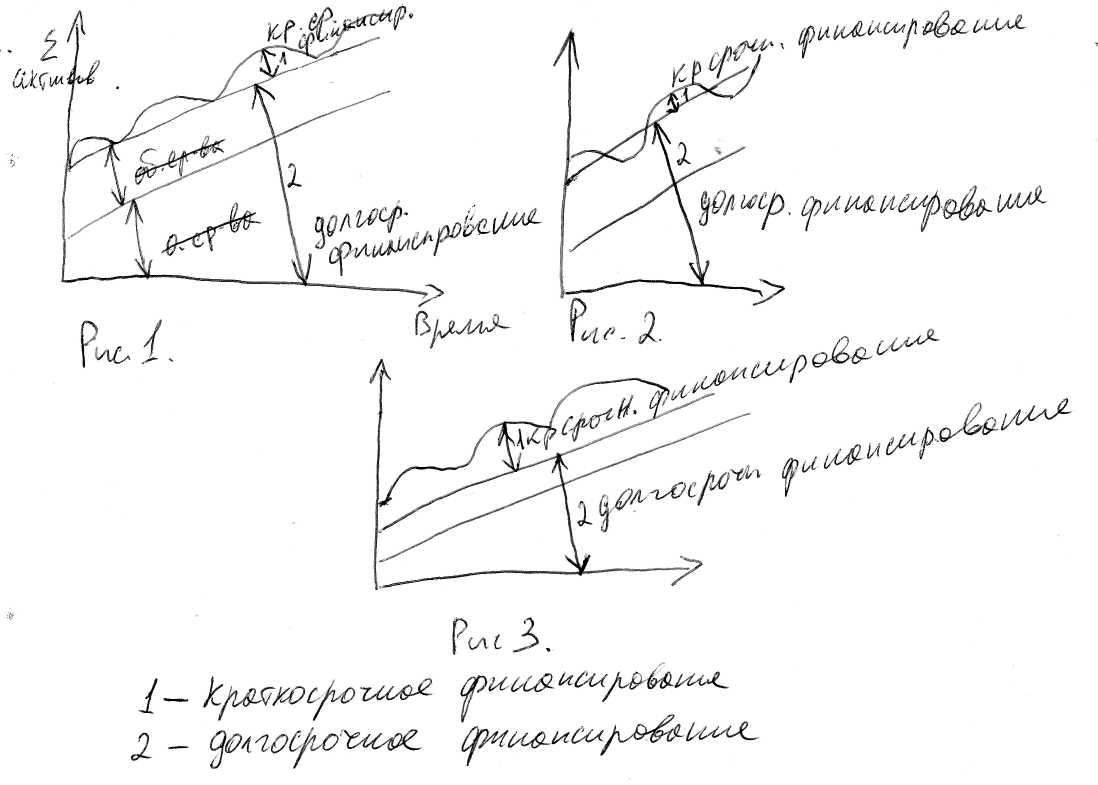 Σ
активов.
кр. ср.
финансир.
1
об. ср-ва
2
о. ср-ва
долгоср.
финансирование
Время
Рис. 1.
кр срочн. финансирование
1
2
долгоср. финансирование
Рис. 2.
1 кр срочн. финансирование
2 долгосрочн финансирование
Рис 3.
1 – Краткосрочное финансирования
2 – долгосрочное финансирование